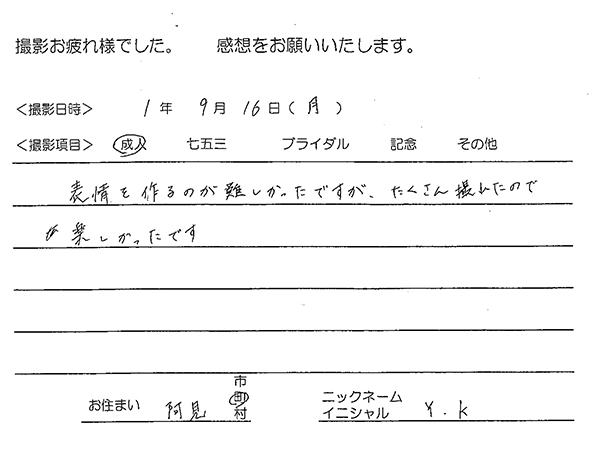 撮影お疲れ様でした。 感想をお願いいたします。
<撮影日時> 1年 9月 16日(月)
<撮影項目> 成人 七五三 ブライダル 記念 その他
表情を作るのが難しかったですが、たくさん撮れたので
楽しかったです
市
お住まい 阿見 町
村
ニックネーム
イニシャル Y.K